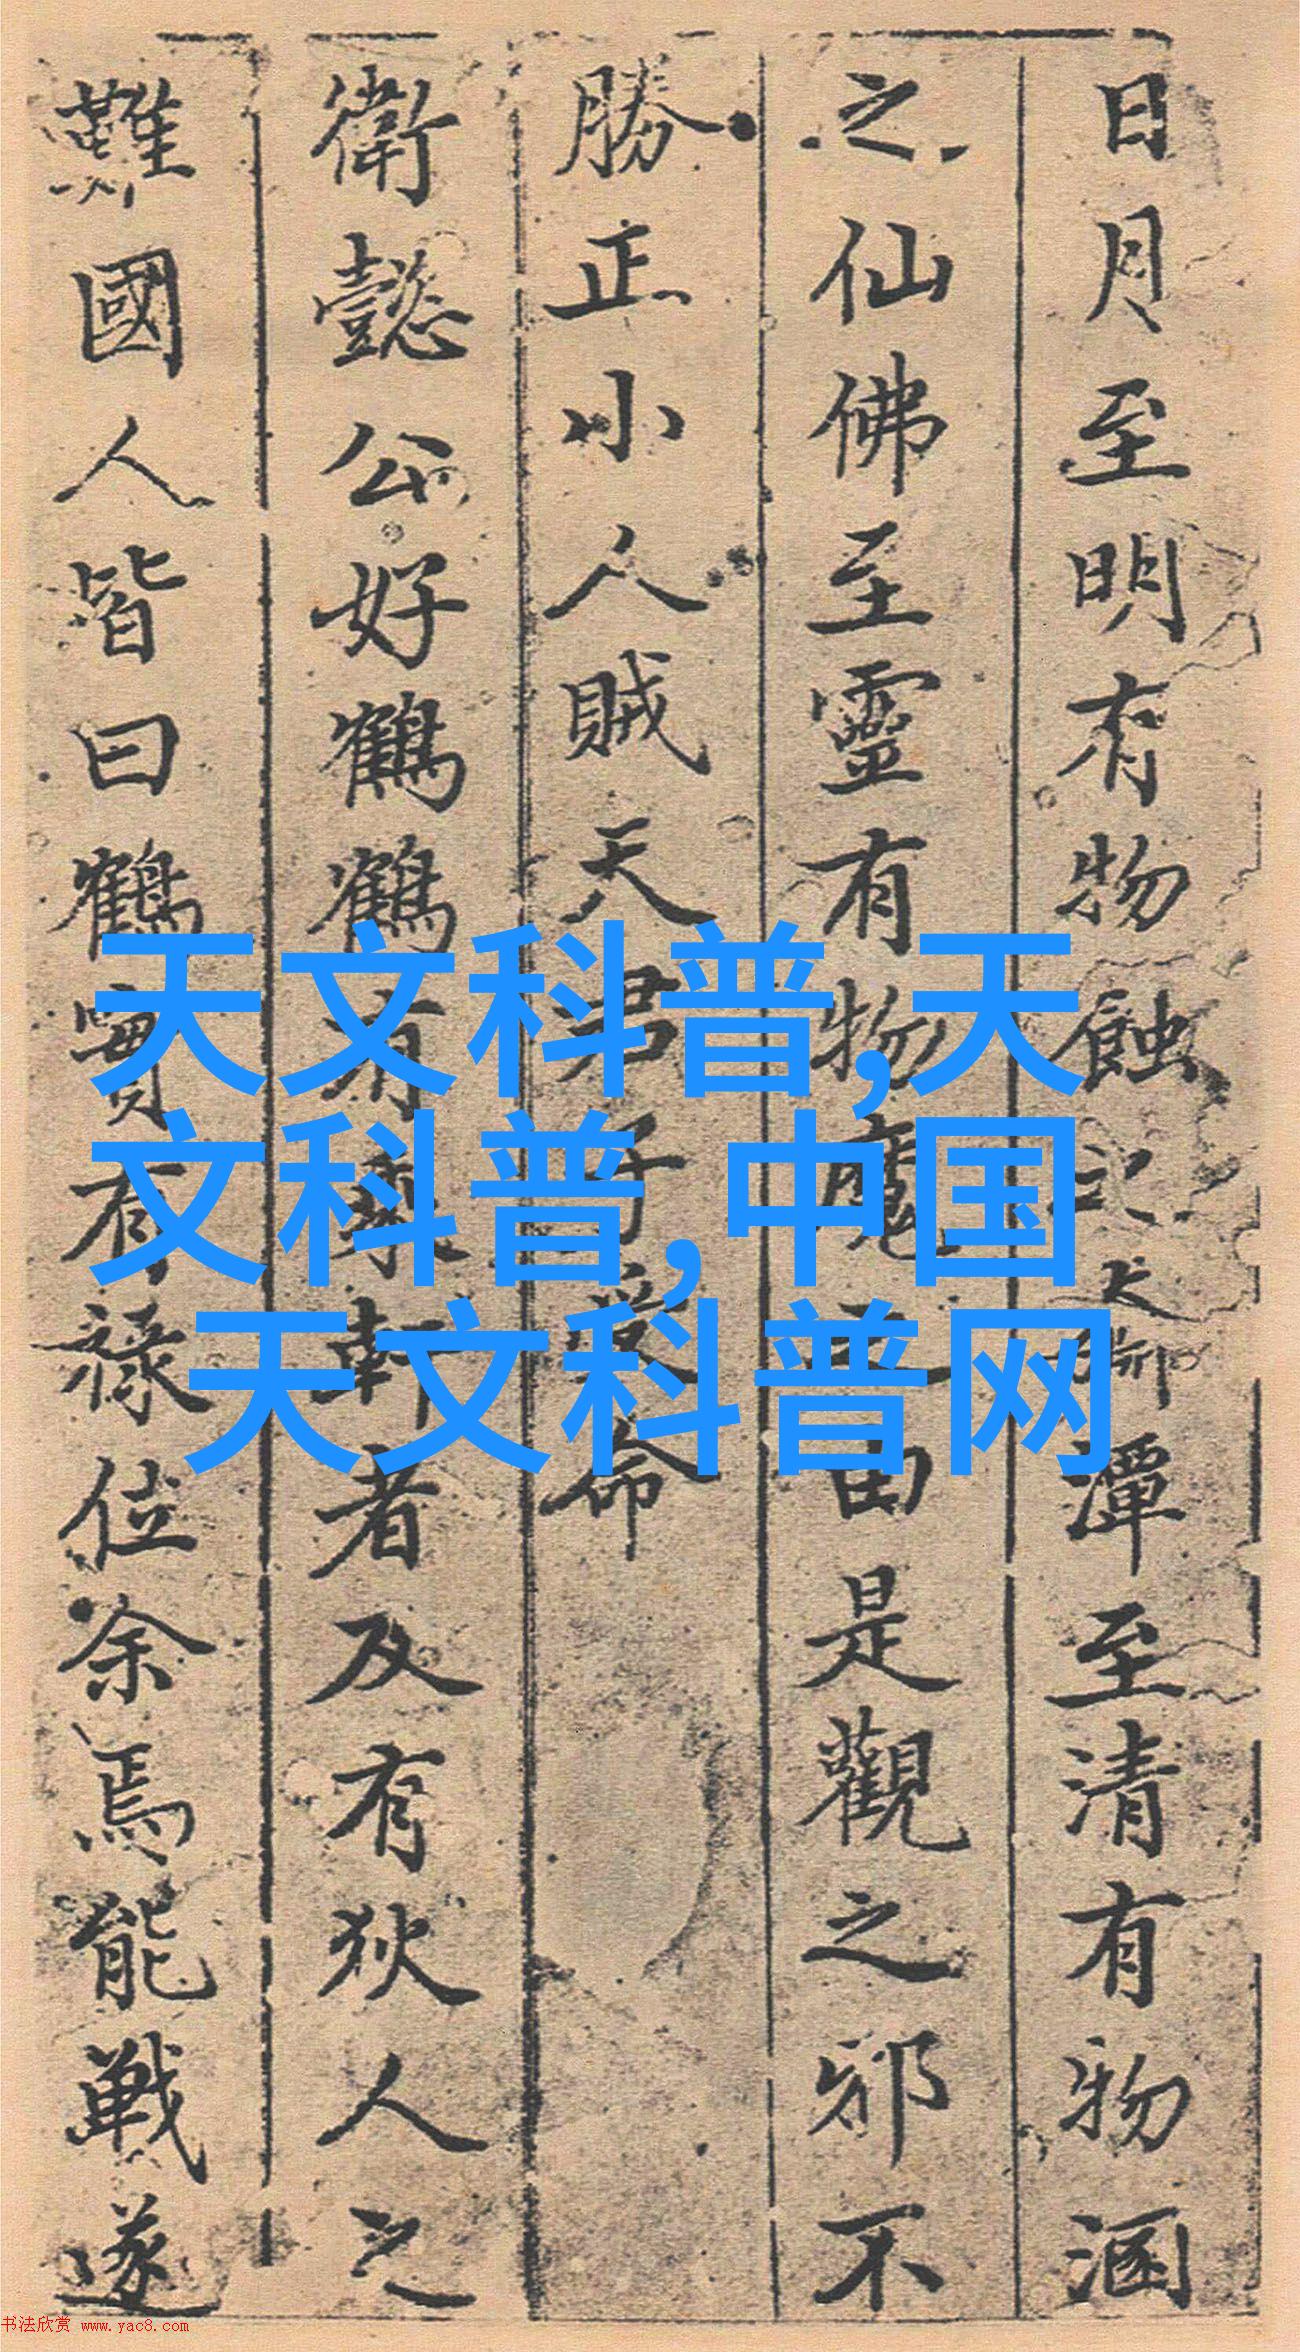 日月至明有物蝕之潭至清有物涵
之仙佛至靈有物魔由是觀之邪不
勝正小人賊天君子命
衛懿公好鶴鶴有乘軒者及有狄人之
難國人皆曰鶴實有祿位余焉能戰遂
天文科普,天
文科普,中国
天文科普网
书法欣赏 www.yac8.com